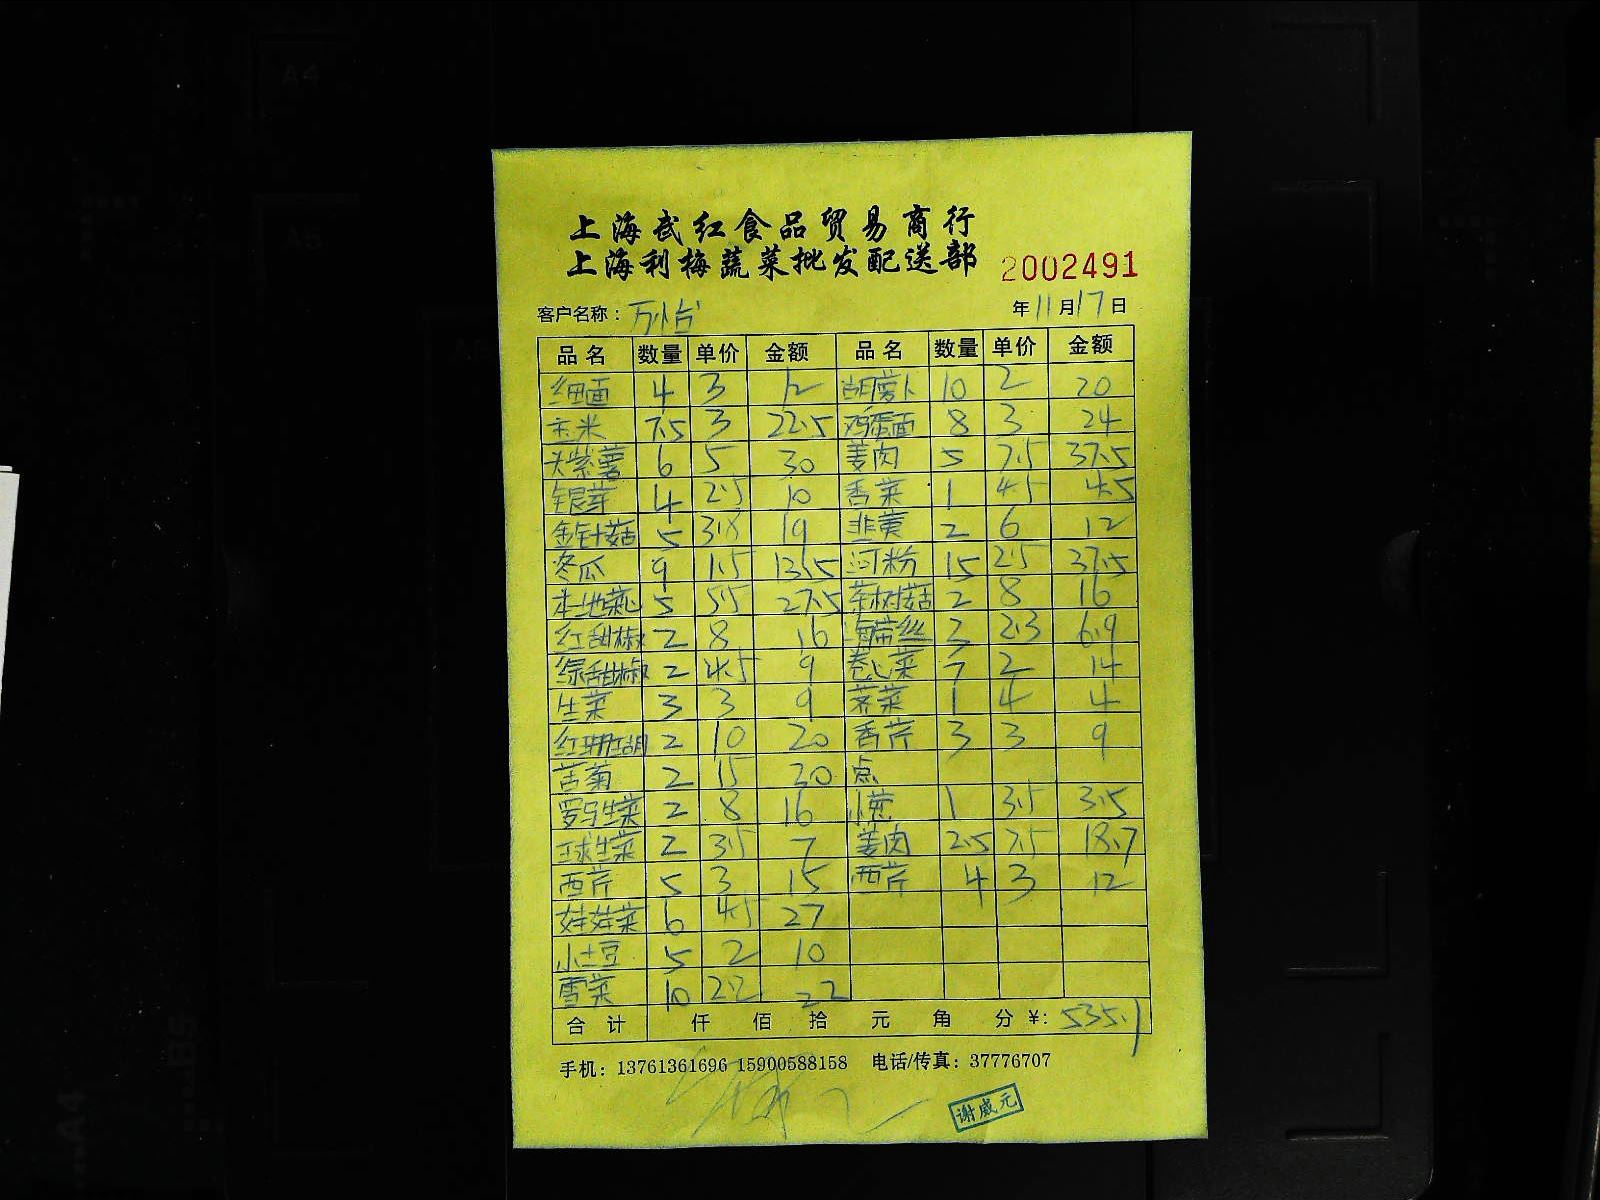 上海武红食品贸易商行
上海利梅蔬菜批发配送部 2002491
客户名称：万怡 年11月17日
品名 数量 单价 金额 品名 数量 单价 金额
细面 4 3 12 胡萝卜 10 2 20
玉米 7.5 3 22.5 鸡蛋面 8 3 24
大紫薯 6 5 30 姜肉 5 7.5 37.5
银芽 4 2.5 10 香菜 1 4.5 4.5
金针菇 5 3.8 19 韭黄 2 6 12
冬瓜 9 1.5 13.5 河粉 15 2.5 37.5
本地菜心 5 5.5 27.5 茶树菇 2 8 16
红甜椒 2 8 16 海带丝 3 2.3 6.9
绿甜椒 2 4.5 9 卷心菜 7 2 14
生菜 3 3 9 荠菜 1 4 4
红珊瑚 2 10 20 香芹 3 3 9
苦菊 2 15 30 点
罗马生菜 2 8 16 小葱 1 3.5 3.5
球生菜 2 3.5 7 姜肉 2.5 7.5 18.7
西芹 5 3 15 西芹 4 3 12
娃娃菜 6 4.5 27
小土豆 5 2 10
雪菜 10 2.2 22
合计 仟 佰 拾 元 角 分 ¥: 535.1
手机：13761361696 15900588158 电话/传真：37776707
谢威元